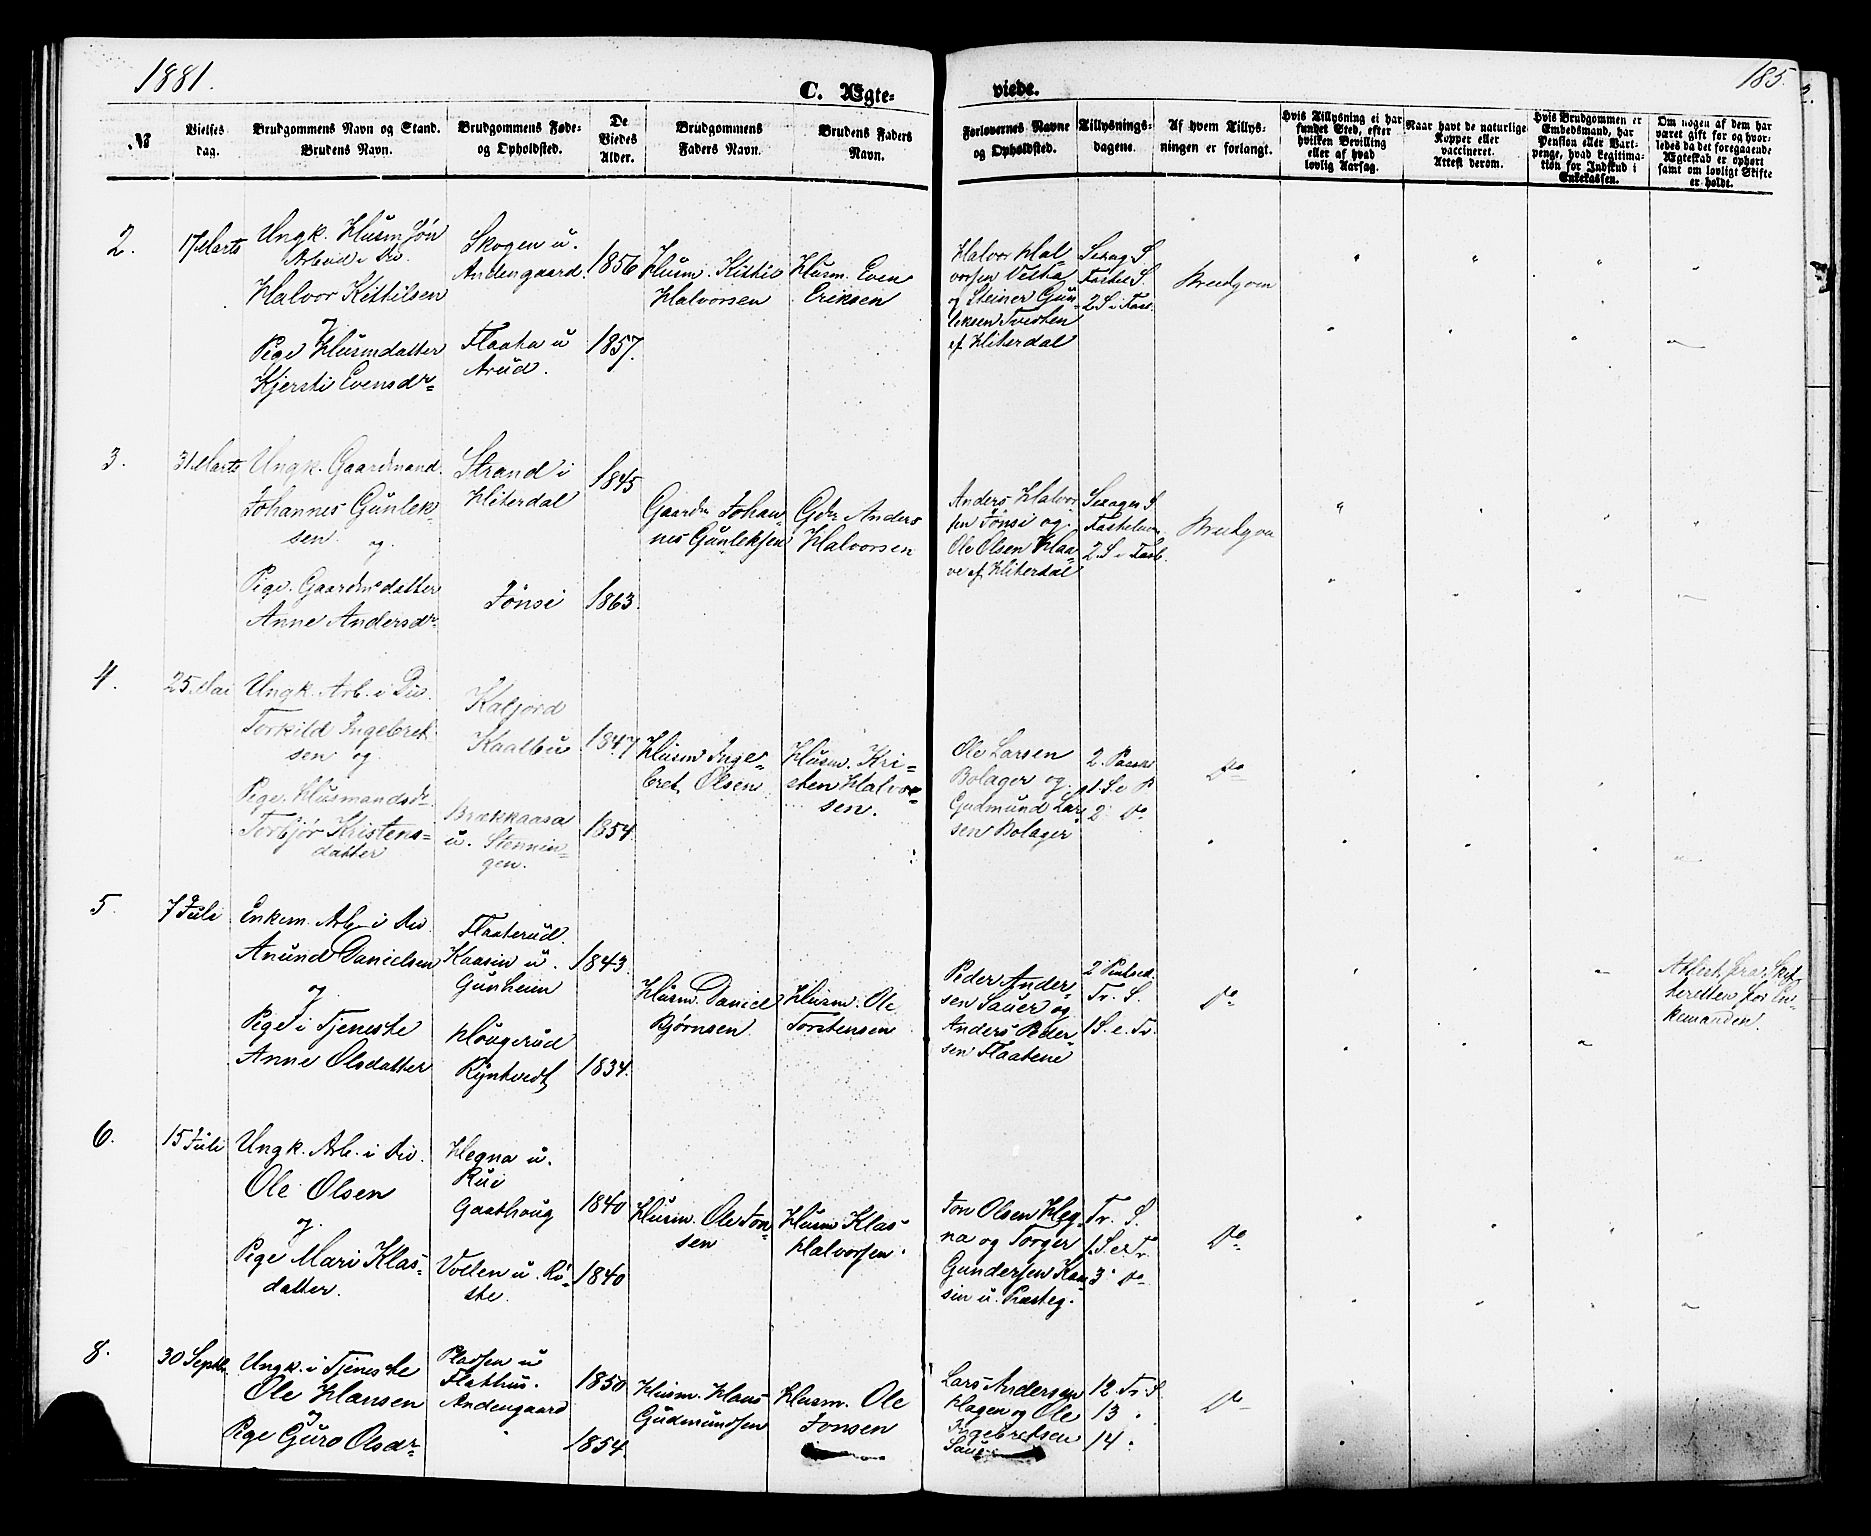 1881.
C. Ægte-
viede.
185.
№
Vielses
dag.
Brudgommens Navn og Stand.
Brudens Navn.
Brudgommens Føde-
og Opholdsted.
De
Viedes
Alder.
Brudgommens
Faders Navn.
Brudens Faders
Navn.
Forlovernes Navne
og Opholdsted.
Tillysnings-
dagene.
Af hvem Tillys-
ningen er forlangt.
Hvis Tillysning ei har
fundet Sted, efter
hvilken Bevilling
eller af hvad
lovlig Aarsag.
Naar havt de naturlige
Kopper eller
vaccineret.
Attest derom.
Hvis Brudgommen er
Embedsmand, har
Pension eller Vart-
penge, hvad Legitima-
tion for Indskud i
Enkekassen.
Om nogen af dem har
været gift før og hvor-
ledes da det foregaaende
Ægteskab er ophørt
samt om lovligt Skifte
er holdt.
2.
17 Marts
Ungk. Husm Søn
Arbeid i Div.
Halvor Kittilsen
og
Pige Husmdatter
Kjersti Evensdr
Skogen u.
Andengaard
Flaata u
Arud.
1856
1857.
Husm. Kittil
Halvorsen
Husm. Even
Eriksen
Halvor Hal-
vorsen Vesha
og Steiner Gun-
leksen Tveiten
af Hiterdal
Sexag S.
Fastel S.
2 S i Fast.
Brudgom
3.
31 Marts
Ungk. Gaardmand
Johannes Gunlek-
sen. og
Pige. Gaardmsdatter
Anne Andersdr
Strand i
Hiterdal
Jønsi
1845
1863.
Gaardm Johan-
nes Gunleksen
Gdm Anders
Halvorsen
Anders Halvor-
sen Jønsi og
Ole Olsen Haa-
ve af Hiterdal
Sexages S.
Fastelavn
2. S i Fast.
Brudgom
4.
25 Mai
Ungk. Arb. i Div.
Torkild Ingebret-
sen og
Pige. Husmandsdr
Torbjør Kristens-
datter
Kaljord
Kaalbu
Brækkaasa
u. Stennin-
gen.
1847
1854.
Husm Inge-
bret Olsen
Husm. Kri-
sten Halvor-
sen.
Ole Larsen
Bolager og
Gudmund Lar-
sen Bolager
2. Paaske
1. S. e P
2 Do
Do
5.
7 Juli
Enkem. Arb. i Div
Anund Danielsen
og
Pige i Tjeneste
Anne Olsdatter
Flaaterud.
Kaasin u.
Gunheim
Hougerud
Ryntvedt
1843.
1834.
Husm. Daniel
Bjørnsen
Husm. Ole
Torstensen
Peder Ander-
sen Sauer og
Anders Peder-
sen Flaatene
2 Pintsed.
Tr. S.
1 S. e. Tr.
Do
Attest fra Skif-
teretten for En-
kemanden.
6.
15 Juli
Ungk. Arb. i Div.
Ole Olsen
og
Pige Mari Klas-
datter.
Hegna u.
Rui
Gaashoug
Vollen u. Rø-
ste.
1840
1840
Husm. Ole Jon-
sen
Husm Klas
Halvorsen.
Jon Olsen Heg-
na og Torger
Gundersen Kaa-
sin u. Præsteg.
Tr. S.
1. S. e Tr.
3 Do
Do
8.
30 Septbr.
Ungk. i Tjeneste
Ole Hansen
og
Pige Guro Olsdr
Pladsen u
Flathus.
Andengaard
1850
1854.
Husm. Hans
Gudmundsen
Husm. Ole
Jonsen
Lars Andersen
Hagen og Ole
Ingebretsen
Sauer
12. Tr. S
13
14
Do